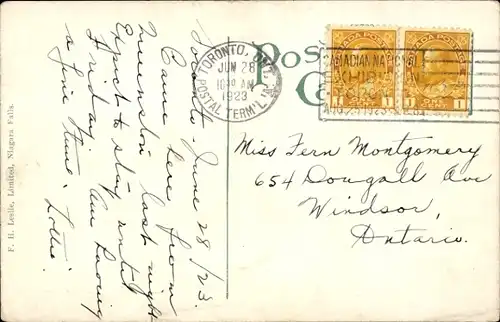 Toronto. June 28/23.
Came here from
last night
Expect to stay until
Friday. Am having
a fine time. Lottie.
F. H. Leslie, Limited, Niagara Falls.
TORONTO, ONT.
JUN 28
10 30 AM
1923
POSTAL TERM'L A
CANADIAN NATIONAL
EXHIBITION
CANADA POSTAGE
CANADA POSTAGE
1 1
1 1
Miss Fern Montgomery
654 Dougall Ave
Windsor,
Ontario.